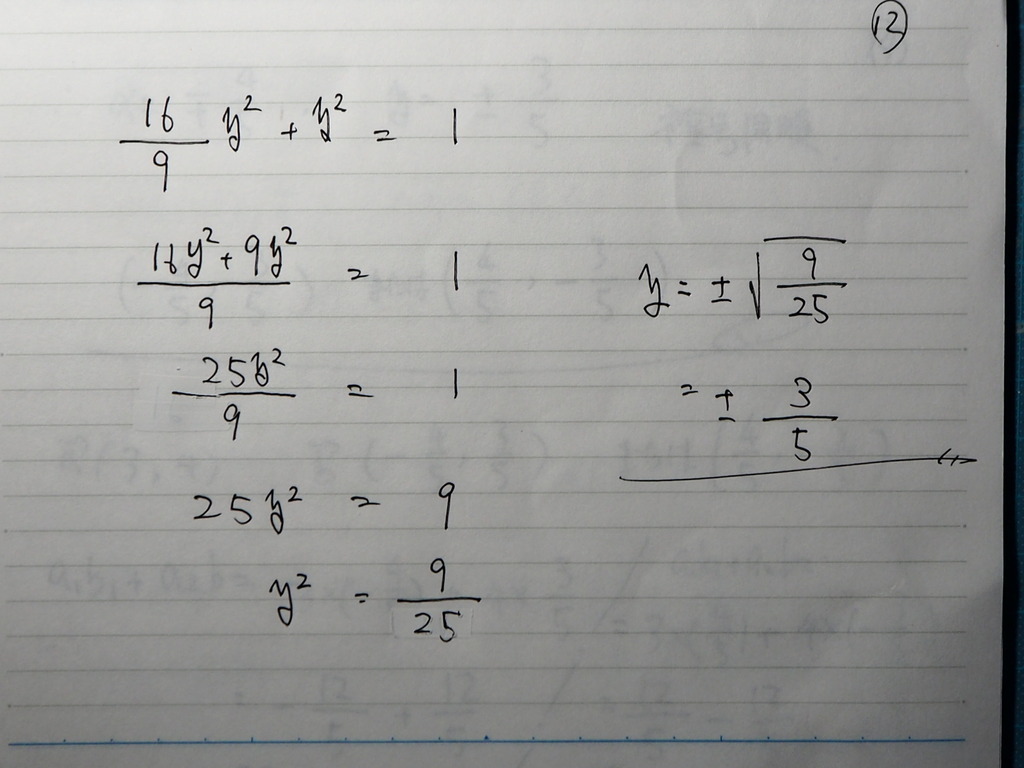 ⑬
16/9 y² + y² = 1
(16y² + 9y²)/9 = 1
25y²/9 = 1
25y² = 9
y² = 9/25
y = ±√(9/25)
= ± 3/5